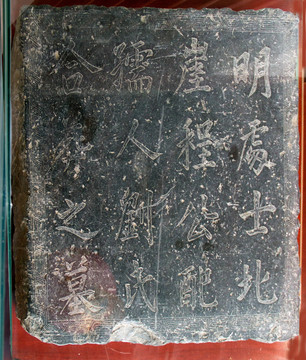 明處士北
崖程公配
孺人劉氏
合葬之墓